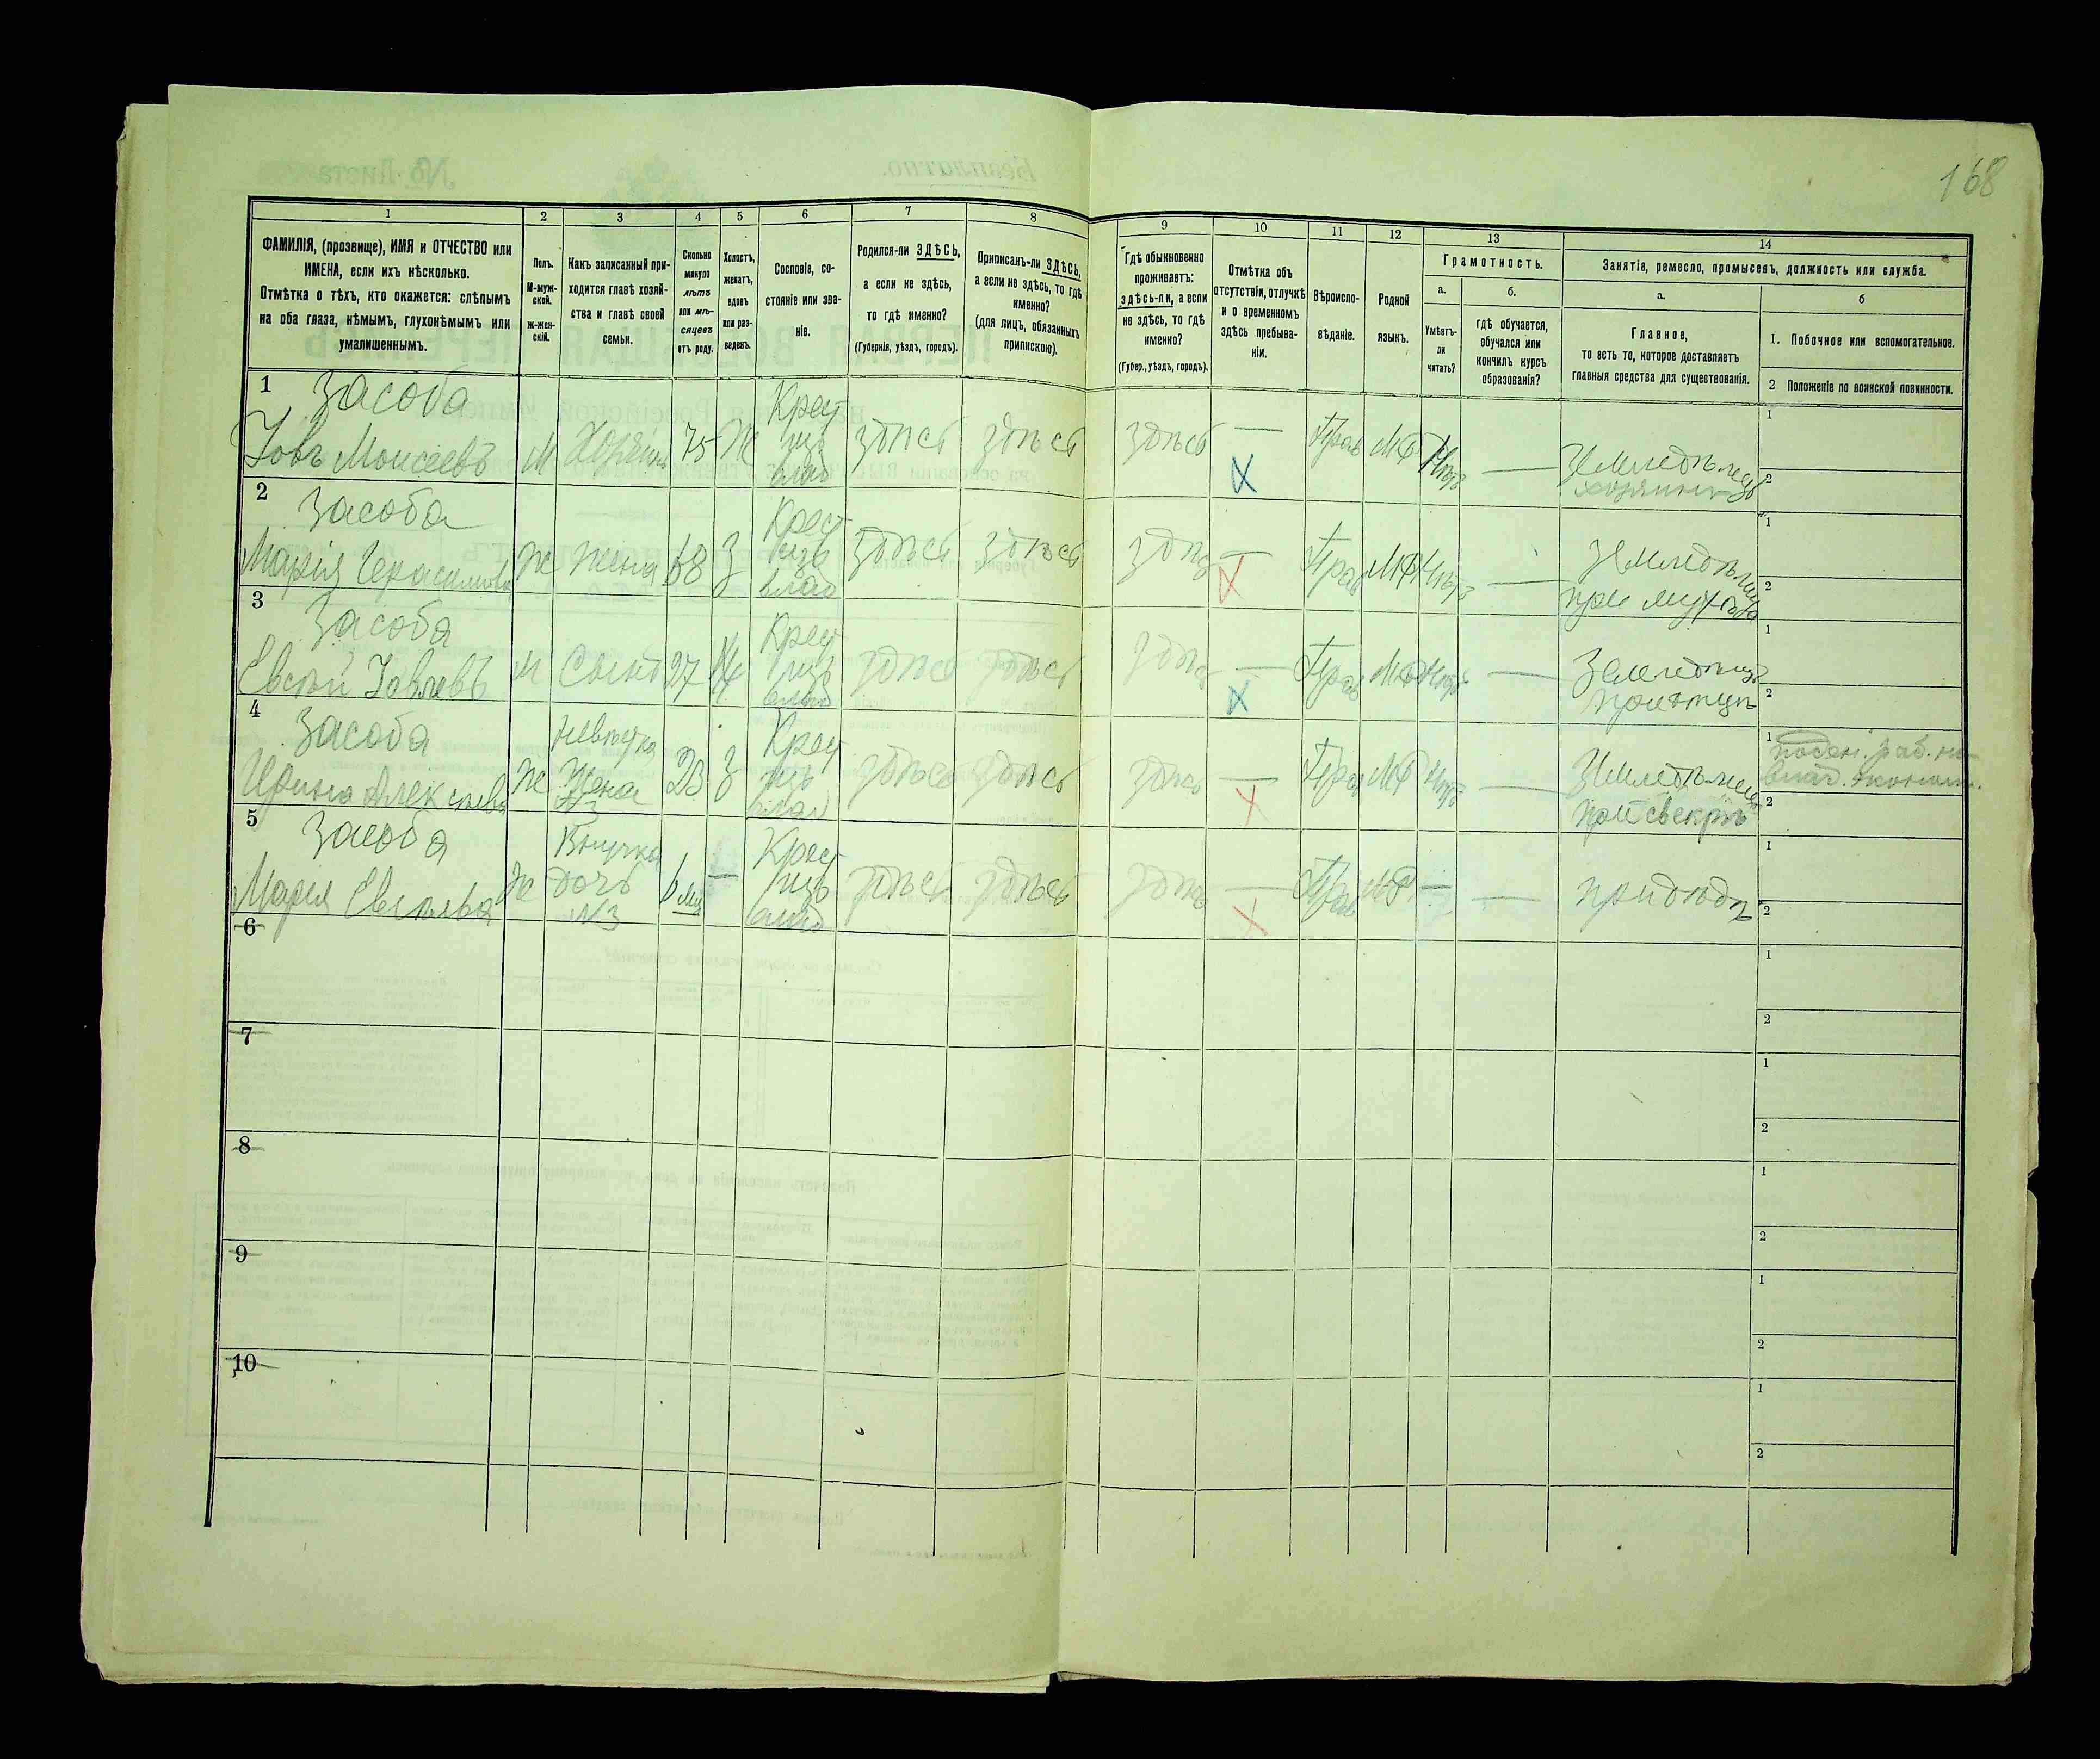 168
1 2 3 4 5 6 7 8 9 10 11 12 13 14
ФАМИЛІЯ, (прозвище), ИМЯ и ОТЧЕСТВО или
ИМЕНА, если ихъ нѣсколько.
Отмѣтка о тѣхъ, кто окажется: слѣпымъ
на оба глаза, нѣмымъ, глухонѣмымъ или
умалишеннымъ.
Полъ.
М-муж-
ской.
ж-жен-
скій.
Какъ записанный при-
ходится главѣ хозяй-
ства и главѣ своей
семьи.
Сколько
минуло
лѣтъ
или мѣ-
сяцевъ
отъ роду.
Холостъ,
женатъ,
вдовъ
или раз-
веденъ.
Сословіе, со-
стояніе или зва-
ніе.
Родился-ли ЗДѢСЬ,
а если не здѣсь,
то гдѣ именно?
(Губернія, уѣздъ, городъ).
Приписанъ-ли ЗДѢСЬ,
а если не здѣсь, то гдѣ
именно?
(для лицъ, обязанныхъ
припискою).
Гдѣ обыкновенно
проживаетъ:
здѣсь-ли, а если
не здѣсь, то гдѣ
именно?
(Губер., уѣздъ, городъ).
Отмѣтка объ
отсутствіи, отлучкѣ
и о временномъ
здѣсь пребыва-
ніи.
Вѣроиспо-
вѣданіе.
Родной
языкъ.
Грамотность.
а.
Умѣетъ-
ли
читать?
б.
гдѣ обучается,
обучался или
кончилъ курсъ
образованія?
Занятіе, ремесло, промыселъ, должность или служба.
а.
Главное,
то есть то, которое доставляетъ
главныя средства для существованія.
б
1. Побочное или вспомогательное.
2 Положеніе по воинской повинности.
1 Засоба Крест 1
Іовъ Моисеевъ М Хозяинъ 75 Ж изъ здѣсь здѣсь здѣсь — Прав Мѣ Нѣтъ — Земледѣлецъ
влад хозяинъ 2
2 Засоба Крест 1
Марія Герасимова Ж Жена 68 З изъ здѣсь здѣсь здѣсь — Прав Мѣ Нѣтъ — Земледѣлица
влад при мужѣ 2
3 Засоба Крест 1
Евсѣй Іовлевъ М Сынъ 27 Ж изъ здѣсь здѣсь здѣсь — Прав Нѣтъ — Земледѣлецъ
влад при отцѣ 2
4 Засоба Невѣстка Крест 1 поден. раб. на
Ирина Алексѣева Ж Жена 23 З изъ здѣсь здѣсь здѣсь — Прав Нѣтъ — Земледѣлица влад. эконом.
№3 влад при свекрѣ 2
5 Засоба Внучка Крест 1
Марія Евсѣева Ж дочь 6 мѣс — изъ здѣсь здѣсь здѣсь — Прав — — при дѣдѣ
№3 влад 2
6 1
2
7 1
2
8 1
2
9 1
2
10 1
2